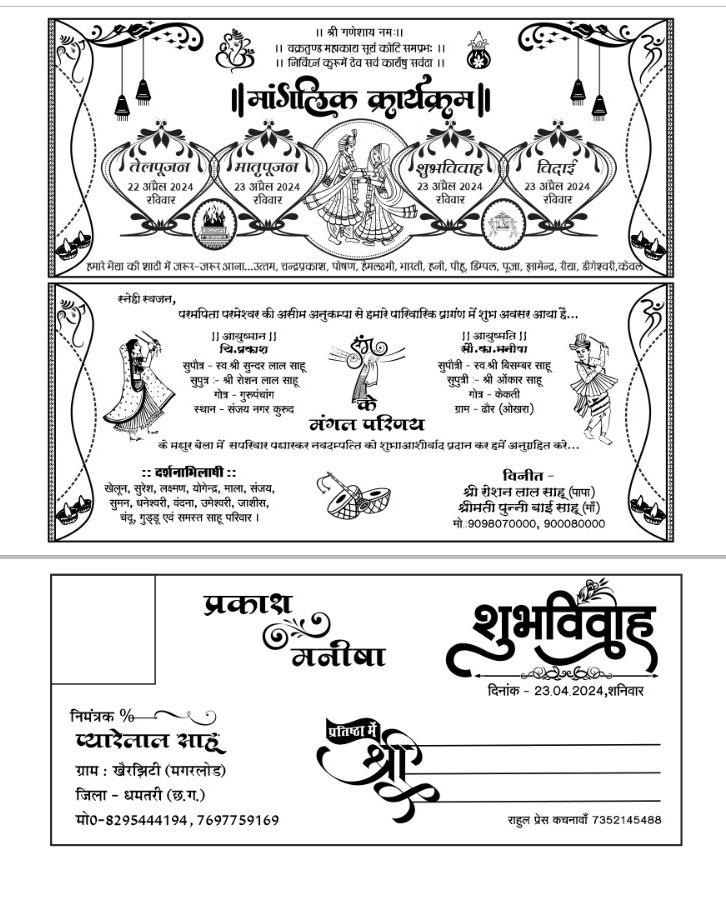 ।। श्री गणेशाय नमः।।
।। वक्रतुण्ड महाकाय सूर्य कोटि समप्रभः ।।
।। निर्विघ्नं कुरूमें देव सर्व कार्येषु सर्वदा ।।
॥मांगलिक कार्यक्रम॥
तेलपूजन
22 अप्रैल 2024
रविवार
मातृपूजन
23 अप्रैल 2024
रविवार
शुभविवाह
23 अप्रैल 2024
रविवार
विदाई
23 अप्रैल 2024
रविवार
हमारे भैया की शादी में जरूर-जरूर आना...उत्तम, चन्द्रप्रकाश, पोषण, हेमलक्ष्मी, भारती, हनी, पीहू, डिम्पल, पूजा, ज्ञामेन्द्र, रीद्या, डीगेश्वरी,केवल
स्नेही स्वजन,
परमपिता परमेश्वर की असीम अनुकम्पा से हमारे पारिवारिक प्रागंण में शुभ अवसर आया है...
|| आयुष्मान ||
चि.प्रकाश
सुपौत्र - स्व.श्री सुन्दर लाल साहू
सुपुत्र :- श्री रोशन लाल साहू
गोत्र - गुरुपंचांग
स्थान - संजय नगर कुरुद
संग
के
मंगल परिणय
|| आयुष्मति ||
सौ.का.मनीषा
सुपौत्री - स्व.श्री बिसम्बर साहू
सुपुत्री :- श्री ओंकार साहू
गोत्र - केकती
ग्राम - ढौर (ओखरा)
के मधुर बेला में सपरिवार पधारकर नवदम्पत्ति को शुभआशीर्वाद प्रदान कर हमें अनुग्रहित करे...
:: दर्शनाभिलाषी ::
खेलून, सुरेश, लक्ष्मण, योगेन्द्र, माला, संजय,
सुमन, धनेश्वरी, वंदना, उमेश्वरी, जाशीस,
चंदू, गुड्डू एवं समस्त साहू परिवार ।
विनीत -
श्री रोशन लाल साहू (पापा)
श्रीमती पुन्नी बाई साहू (माँ)
मो.:9098070000, 900080000
प्रकाश
मनीषा
शुभविवाह
दिनांक - 23.04.2024,शनिवार
निमंत्रक %
प्यारेलाल साहू
ग्राम : खैरझिटी (मगरलोड)
जिला - धमतरी (छ.ग.)
मो0-8295444194, 7697759169
प्रतिष्ठा में
श्री
राहुल प्रेस कचनावाँ 7352145488